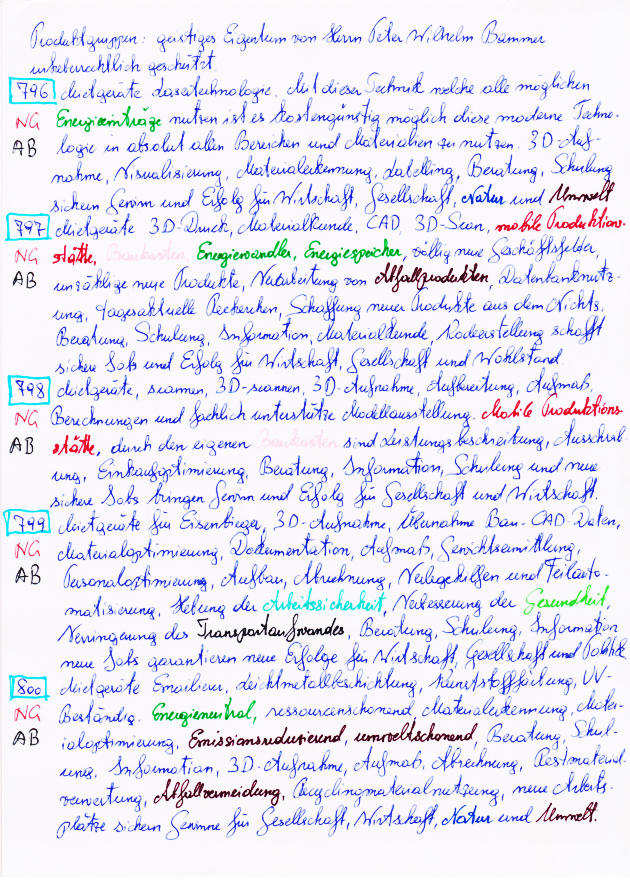 Produktgruppen: geistiges Eigentum von Herrn Peter Wilhelm Bammer
urheberrechtlich geschützt
796 Mietgeräte Lasertechnologie. Mit dieser Technik welche alle möglichen
NG Energieeinträge nutzen ist es kostengünstig möglich diese moderne Techno-
AB logie in absolut allen Bereichen und Materialien zu nutzen. 3D-Auf-
nahme, Visualisierung, Materialerkennung, Beratung, Schulung
sichern Gewinn und Erfolg für Wirtschaft, Gesellschaft, Natur und Umwelt
797 Mietgeräte 3D-Druck, Materialkunde, CAD, 3D-Scan, mobile Produktions-
NG stätte, Baukasten, Energiewandler, Energiespeicher, völlig neue Geschäftsfelder,
AB unzählige neue Produkte, Verarbeitung von Abfallprodukten, Datenbanknutz-
ung, tagesaktuelle Recherchen, Schaffung neuer Produkte aus dem Nichts,
Beratung, Schulung, Information, Materialkunde, Codeerstellung schafft
sichere Jobs und Erfolg für Wirtschaft, Gesellschaft und Wohlstand
798 Mietgeräte, scannen, 3D-scannen, 3D-Aufnahme, Aufbereitung, Aufmaß,
NG Berechnungen und fachlich unterstütze Modellausstellung. Mobile Produktions-
AB stätte, durch den eigenen Baukasten sind Leistungsbeschreibung, Ausschreib-
ung, Einkaufoptimierung, Beratung, Information, Schulung und neue
sichere Jobs bringen Gewinn und Erfolg für Gesellschaft und Wirtschaft.
799 Mietgeräte für Eisenbieger, 3D-Aufnahme, Übernahme Bau-CAD-Daten,
NG Materialoptimierung, Dodumentation, Aufmaß, Gewichtsermittlung,
AB Personaloptimierung, Aufbau, Abrechnung, Verlegehilfen und Teilauto-
matisierung, Hebung der Arbeitssicherheit, Verbesserung der Gesundheit,
Verringerung des Transportaufwandes, Beratung, Schulung, Information
neue Jobs garantieren neue Erfolge für Wirtschaft, Gesellschaft und Politik
800 Mietgeräte Emailieren, Leichtmetallbeschichtung, Kunststofffärbung, UV-
NG Beständig. Energieneutral, ressourcenschonend Materialerkennung, Mater-
AB ialoptimierung, Emissionsreduzierend, umweltschonend, Beratung, Schul-
ung, Information, 3D-Aufnahme, Aufmaß, Abrechnung, Restmaterial-
verwertung, Abfallvermeidung, Recyclingmaterialnutzung, neue Arbeits-
plätze sichern Gewinne für Gesellschaft, Wirtschaft, Natur und Umwelt.